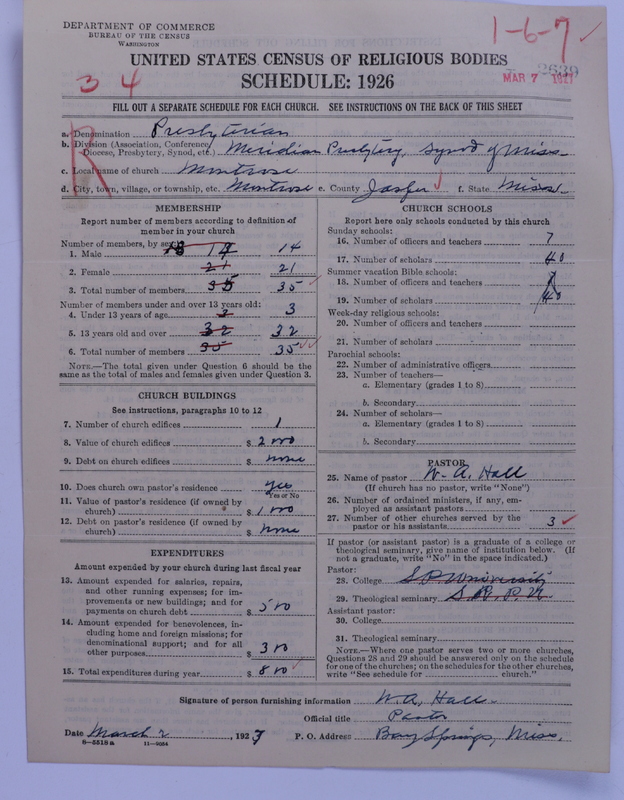 DEPARTMENT OF COMMERCE
BUREAU OF THE CENSUS
WASHINGTON
1-6-7
2639
MAR 7 1927
UNITED STATES CENSUS OF RELIGIOUS BODIES
SCHEDULE: 1926
3 4
FILL OUT A SEPARATE SCHEDULE FOR EACH CHURCH. SEE INSTRUCTIONS ON THE BACK OF THIS SHEET
R
a. Denomination Presbyterian
b. Division (Association, Conference, Diocese, Presbytery, Synod, etc.) Meridian Presbytery, Synod of Miss
c. Local name of church Montrose
d. City, town, village, or township, etc. Montrose e. County Jasper f. State Miss.
MEMBERSHIP
Report number of members according to definition of
member in your church
Number of members, by sex:
1. Male 14 14
2. Female 21 21
3. Total number of members 35 35
Number of members under and over 13 years old:
4. Under 13 years of age 3 3
5. 13 years old and over 32 32
6. Total number of members 35 35
NOTE.—The total given under Question 6 should be
same as the total of males and females given under Question 3.
CHURCH BUILDINGS
See instructions, paragraphs 10 to 12
7. Number of church edifices 1
8. Value of church edifices $ 2000
9. Debt on church edifices $ none
10. Does church own pastor's residence? yes
Yes or No
11. Value of pastor's residence (if owned by
church) $ 1000
12. Debt on pastor's residence (if owned by
church) $ none
EXPENDITURES
Amount expended by your church during last fiscal year
13. Amount expended for salaries, repairs,
and other running expenses; for im-
provements or new buildings; and for
payments on church debt $ 500
14. Amount expended for benevolences, in-
cluding home and foreign missions; for
denominational support; and for all
other purposes $ 300
15. Total expenditures during year $ 800
CHURCH SCHOOLS
Report here only schools conducted by this church
Sunday schools:
16. Number of officers and teachers 7
17. Number of scholars 40
Summer vacation Bible schools:
18. Number of officers and teachers
19. Number of scholars 40
Week-day religious schools:
20. Number of officers and teachers
21. Number of scholars
Parochial schools:
22. Number of administrative officers
23. Number of teachers—
a. Elementary (grades 1 to 8)
b. Secondary
24. Number of scholars—
a. Elementary (grades 1 to 8)
b. Secondary
PASTOR
25. Name of pastor W. A. Hall
(If church has no pastor, write "None")
26. Number of ordained ministers, if any, em-
ployed as assistant pastors
27. Number of other churches served by the
pastor or his assistants 3
If pastor (or assistant pastor) is a graduate of a college or
theological seminary, give name of institution below. (If
not a graduate, write "No" in the space indicated.)
Pastor:
28. College S P University
29. Theological seminary
Assistant pastor:
30. College
31. Theological seminary
NOTE.—Where one pastor serves two or more churches,
Questions 28 and 29 should be answered only on the schedule
for one of the churches; on the schedules for the other churches,
write "See schedule for church."
Signature of person furnishing information W. A. Hall
Official title Pastor
Date March 2 1927 P. O. Address Bay Springs, Miss.
8-5518a 11-9084